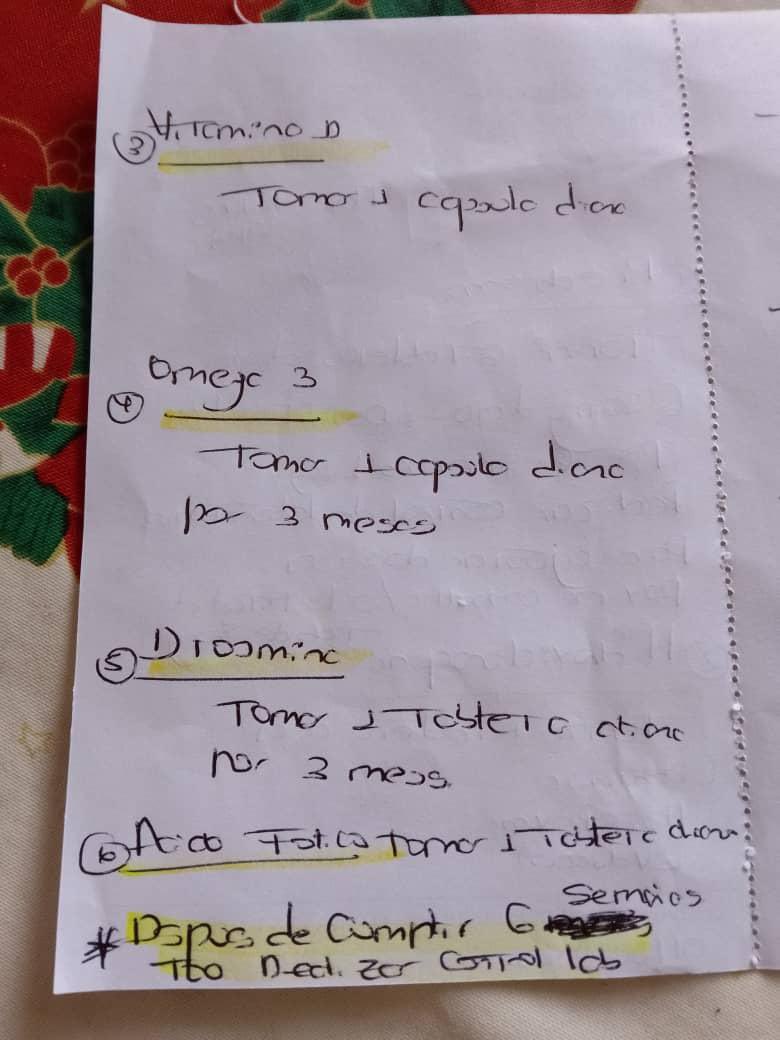 ③ Vitamina D
Tomar 1 capsula diaria
④ Omega 3
Tomar 1 capsula diaria
por 3 meses
⑤ Diosmina
Tomar 1 Tableta diaria
por 3 meses
⑥ Acido Folico Tomar 1 Tableta diaria
* Despues de Cumplir 6 Semanas
Tto Realizar Control lab